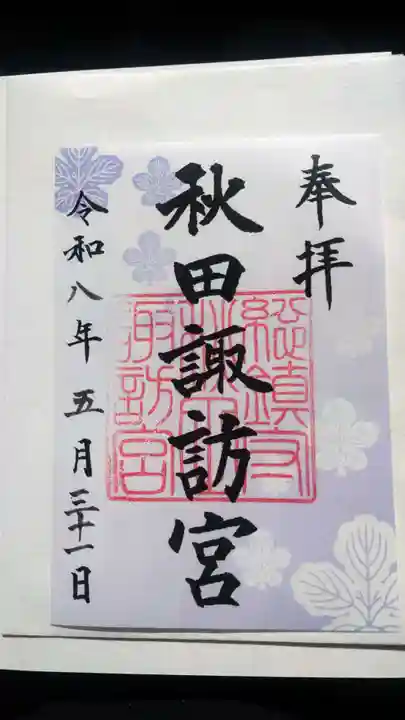 奉拝
秋田諏訪宮
総鎮守
秋田
諏訪宮
令和八年 五月三十一日